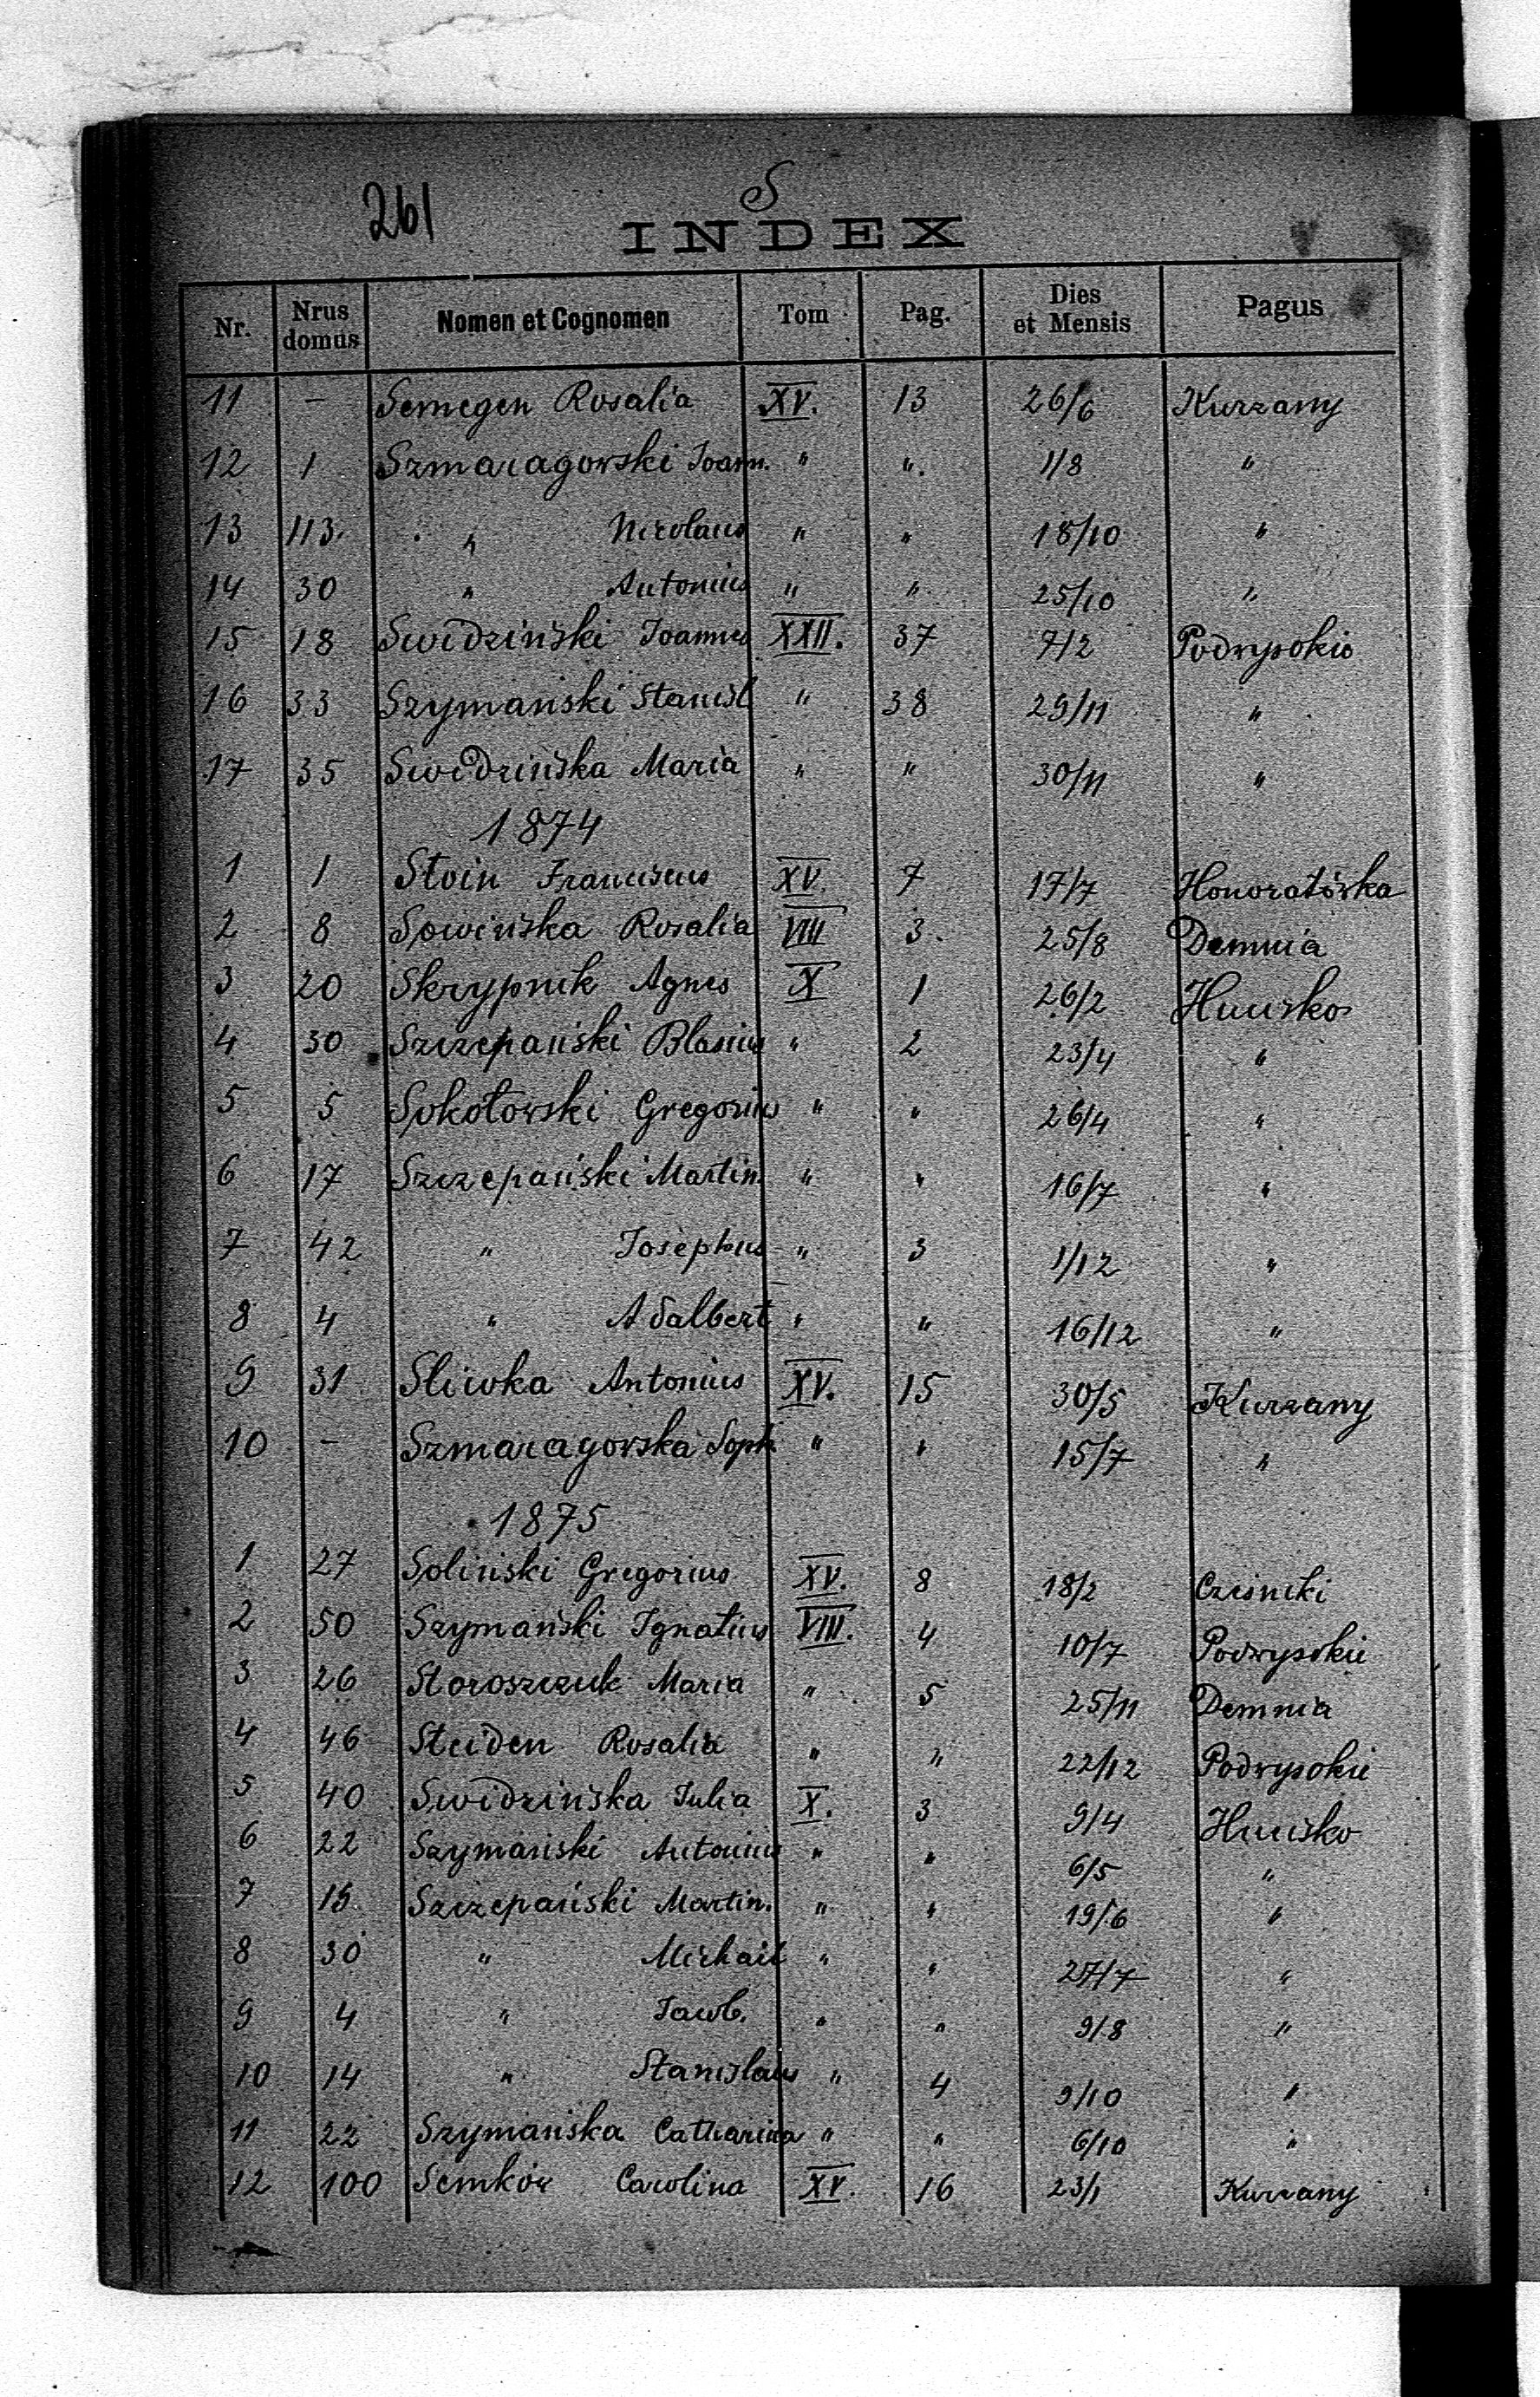 261
S
INDEX
Nr. Nrus domus Nomen et Cognomen Tom Pag. Dies et Mensis Pagus
11 – Semegen Rosalia XV. 13 26/6 Kurzany
12 1 Szmaragowski Joann. " ". 1/8 "
13 113. " Nicolaus " " 18/10 "
14 30 " Antonius " " 25/10 "
15 18 Swidziński Joannes XXII. 37 7/2 Podwysokie
16 33 Szymański Stanisl " 38 29/11 "
17 35 Swidzińska Maria " " 30/11 "
1874
1 1 Stoin Franciscus XV. 7 17/7 Honoratówka
2 8 Sowińska Rosalia VIII 3. 25/8 Demnia
3 20 Skrypnik Agnes X 1 26/2 Hucisko
4 30 Szczepański Blasius " 2 23/4 "
5 5 Sokołowski Gregorius " " 26/4 "
6 17 Szczepański Martin. " " 16/7 "
7 42 " Josephus " 3 1/12 "
8 4 " Adalbert " " 16/12 "
9 31 Sliwka Antonius XV. 15 30/5 Kurzany
10 – Szmaragowska Soph. " " 15/7 "
1875
1 27 Soliński Gregorius XV. 8 18/2 Cześniki
2 50 Szymański Ignatius VIII. 4 10/7 Podwysokie
3 26 Storoszczuk Maria " 5 25/11 Demnia
4 46 Steiden Rosalia " " 22/12 Podwysokie
5 40 Swidzińska Julia X. 3 9/4 Hucisko
6 22 Szymański Antonius " " 6/5 "
7 15 Szczepański Martin. " " 19/6 "
8 30 " Michail " " 27/7 "
9 4 " Jacob. " " 9/8 "
10 14 " Stanislaus " 4 9/10 "
11 22 Szymańska Catharina " " 6/10 "
12 100 Semków Carolina XV. 16 23/1 Kurzany